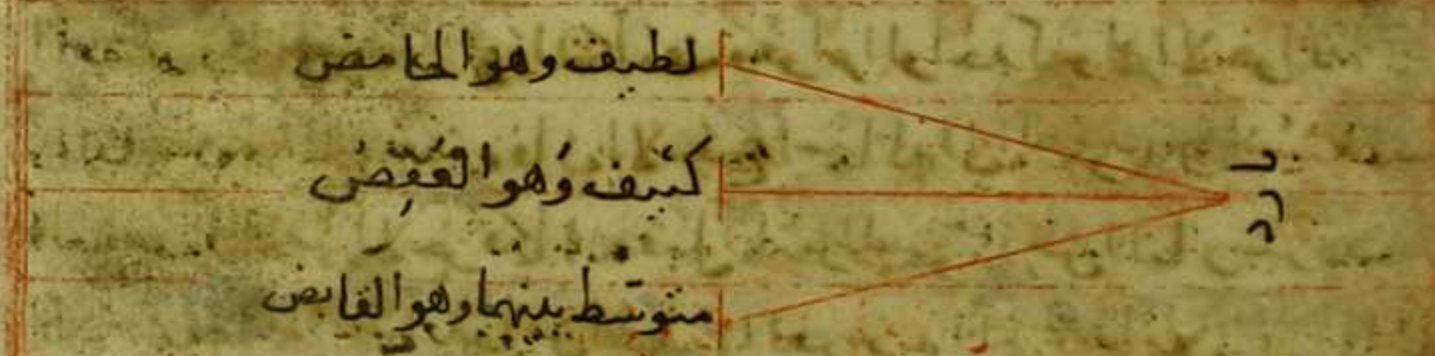 بارد
لطيف وهو الحامض
كثيف وهو العفص
متوسط بينهما وهو القابض